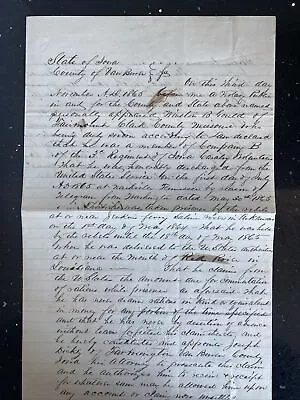 State of Iowa
County of Van Buren } ss
On this third day
November A.D. 1865 before me a Notary Public
in and for the County and State above named
personally appeared Winslow B. Gould of
Clark County Missouri who
being duly sworn according to law declared
that he was a member of Company B
of the 3d Regiment of Iowa Cavalry Volunteers
That he was honorably discharged from the
United States Service on the first day of July
A.D. 1865 at Nashville Tennessee by reason of
Telegram from Washington dated May 1865
was a prisoner of the
at or near Jenkins ferry Saline river in Arkansas
on the 1st day of May 1864 That he was held
by the rebels until the 15th day of May 1865
When he was delivered to the U States authorities
at or near the Mouth of Red River in
Louisiana That he claims from
the U State the amount due for commutation
of rations while prisoner as aforesaid That
he has never drawn rations in kind or equivalent
in money for any portion of the time specified
and that he has never by desertion or absence
without leave forfeited his claim thereto and
he hereby constitutes and appoints Joseph
of Farmington Van Buren County
Iowa his attorney to prosecute this claim
and he authorizes him to receive &
for whatever sum may be allowed him upon
any account or claim now